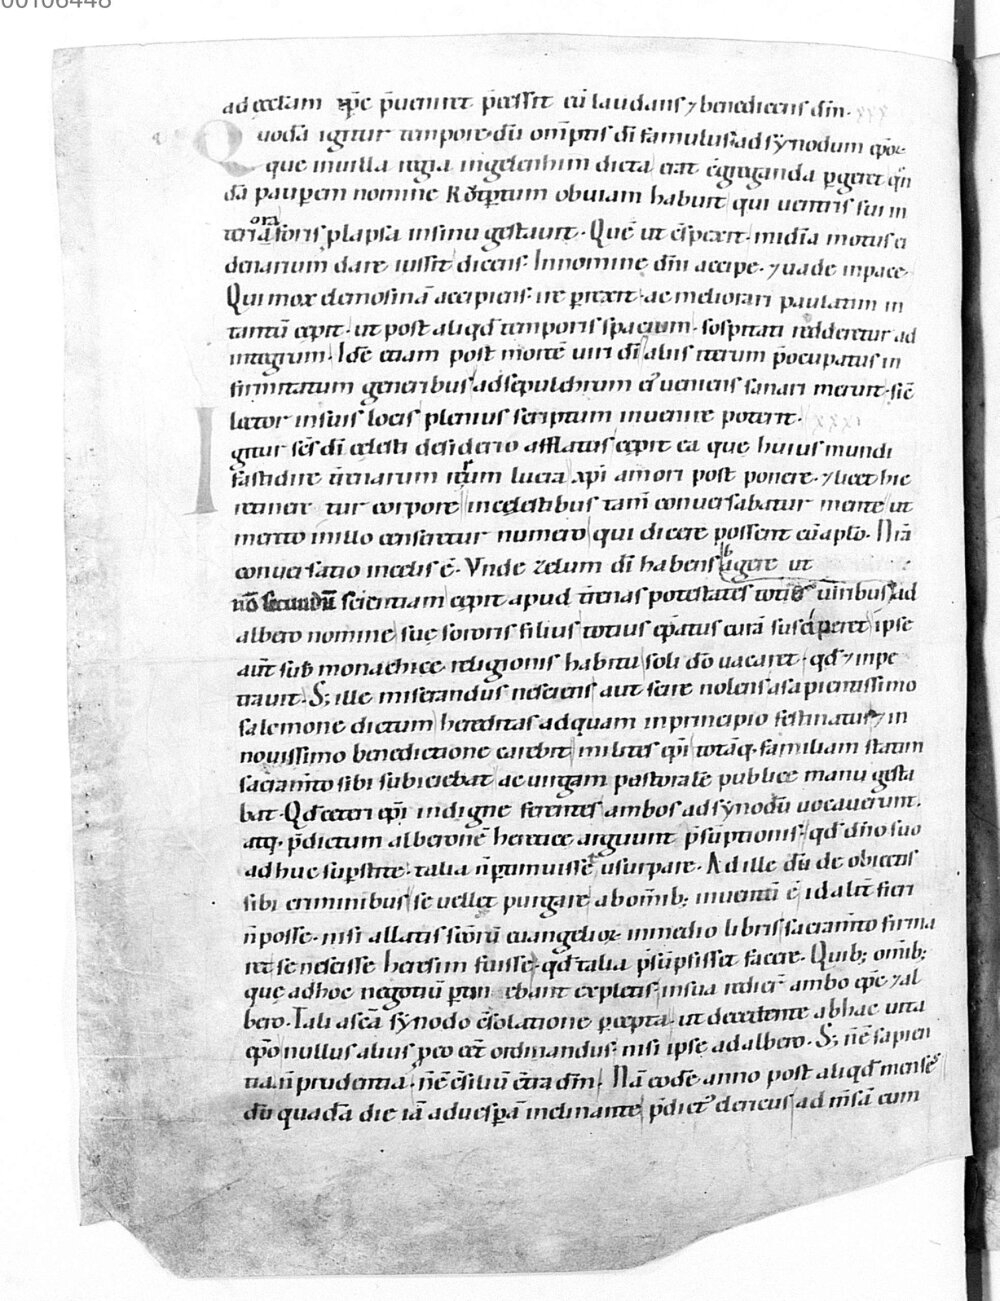 00106448
ad ęcclam xp̄e p̄uenıret p̄cessit eū laudans ⁊ benedicens dn̄m. xxx
Quodā igitur tempore dū om̄ptis dī famulus ad sẏnodum ep̄o
que in uilla regia ingelenhim dicta erat c̄greganda p̄geret qn̄
dā paup̄em nomine Rōtp̄tum obuiam habuit qui uentris sui in
teriora foris plapsa in sinu gestauit. Quē ut c̄spexit. mīdia motus ei
denarium dare iussit dicens. In nomine dn̄i accipe. ⁊ uade in pace.
Qui mox elemosinā accipiens. ire p̄rexit. ac meliorari paulatim in
tantū cępit. ut post aliqd̄ temporis spacium. sospitati redderetur ad
integrum. Idē etiam post mortē uiri dī aliis iterum p̄ocupatus in
firmitatum generibus ad sepulchrum eꝰ ueniens sanari meruit. sic̄
lector in suis locis plenius scriptum inuenire poterit. xxxi
Igitur sc̄s dī cęlesti desiderio afflatus cępit ea quę huius mundi
fastidire t̄renarum rerum lucra xp̄i amori post ponere. ⁊ licet hic
retinere tur corpore in cęlestibus tam̄ conuersabatur mente ut
merito in illo censeretur numero qui dicere possent cū apl̄o. Nr̄a
conuersatio in cęlis ē. Vnde zelum dī habens s; agere ut
nō secundū scientiam cępit apud t̄renas potestates totis uiribus ad
albero nomine suę sororis filius totius ep̄atus curā susciperet ipse
aut̄ sub monachicę religionis habitu soli dō uacaret. qd̄ ⁊ inpe
trauit. S; ille miserandus nesciens aut scire nolens a sapientissimo
salemone dictum hereditas ad quam in principio festinatur ⁊ in
nouissimo benedictione carebit milites ep̄i totāq. familiam statim
sacram̄to sibi subiciebat ac uirgam pastoralē publicę manu gesta
bat. Qd̄ ceteri ep̄i indigne ferentes ambos ad sẏnodū uocauerunt.
atq. p̄dictum alberonē hereticę arguunt p̄sūptionis. qd̄ dn̄o suo
adhuc sup̄stite. talia n̄ ptimuisset usurpare. Ad ille dū de obiectis
sibi criminibus se uellet purgare ab om̄ib; inuentū ē id alit̄ fieri
n̄ posse. nisi allatis sc̄orū euangelioꝝ in medio libris sacram̄to firma
ret se nescisse heresim fuisse. qd̄ talia p̄sūpsisset facere. Quib; om̄ib;
quę ad hoc negotiū ptinebant expletis in sua redier̄ ambo ep̄c ⁊ al
bero. Tali a sc̄a sẏnodo c̄solatione p̄cepta. ut decedente ab hac uita
ep̄o nullus alius p̄ eo eēt ordinandus. nisi ipse adalbero. S; n̄ ē sapien
tia. n̄ prudentia. n̄ ē c̄siliū c̄tra dn̄m. Nā eodē anno post aliqd̄ menses
dū quadā die iā aduesp̄a inclinante p̄dictꝰ clericus ad m̄sā cum